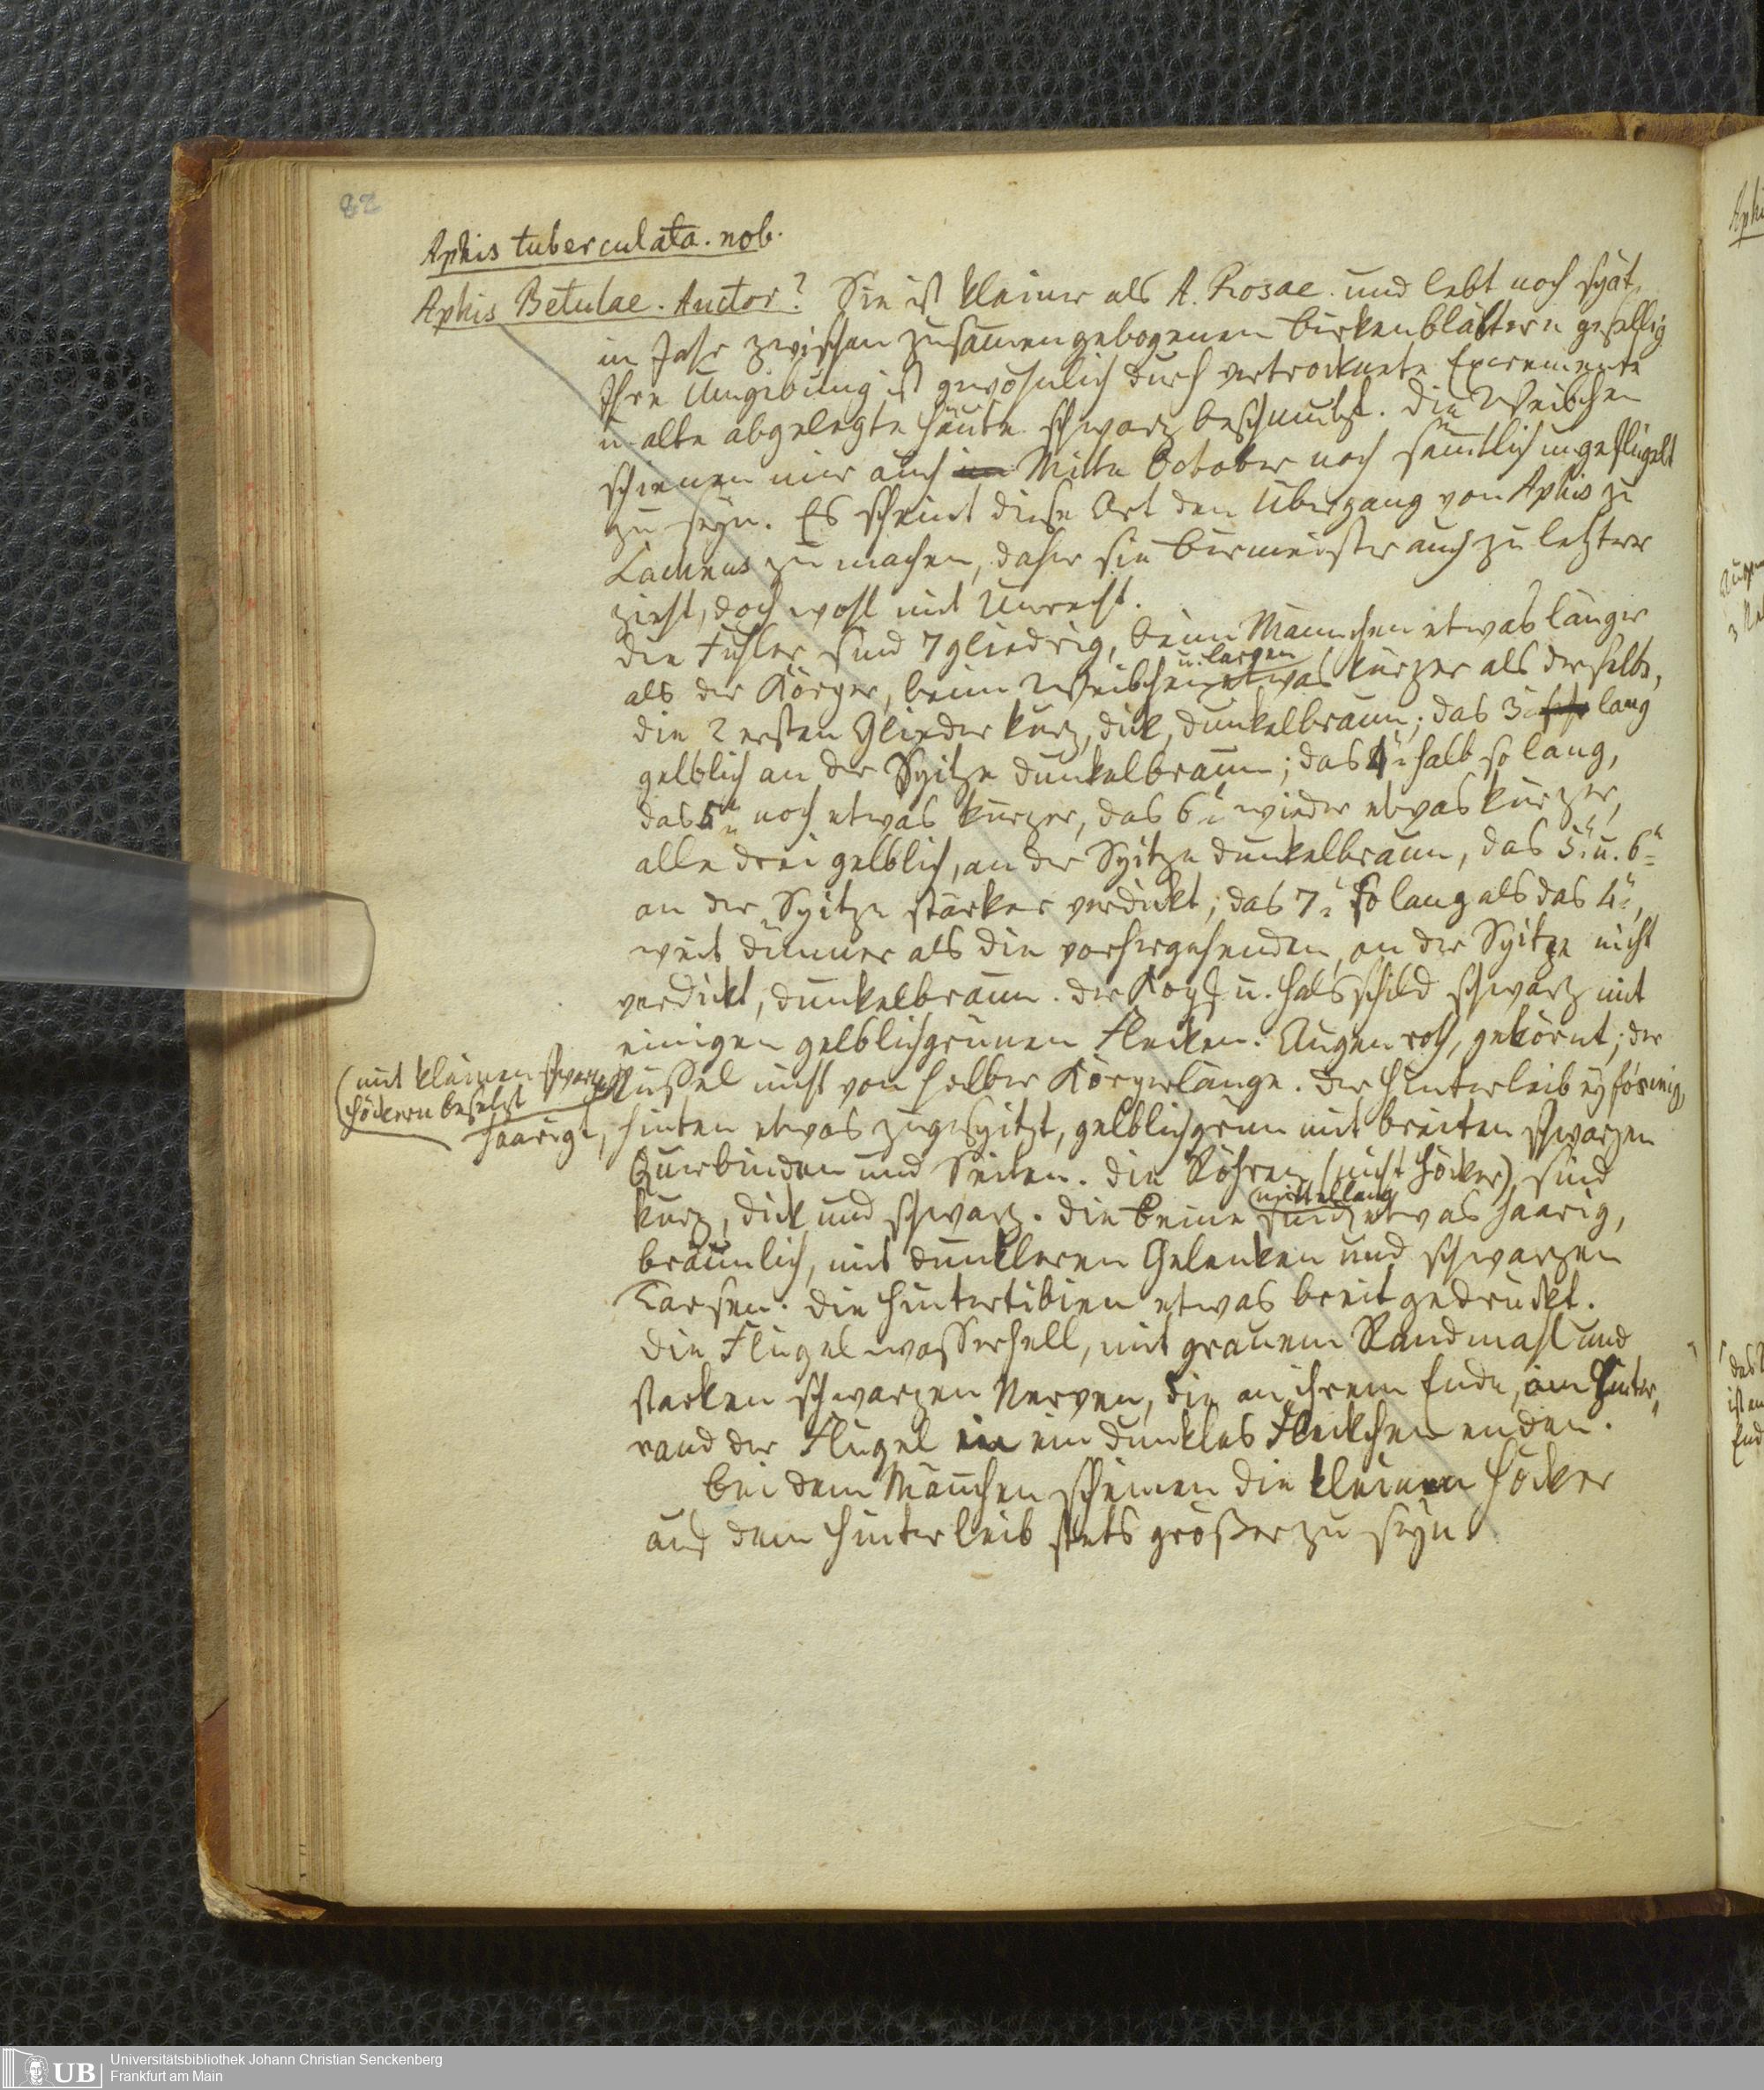 82
Aphis tuberculata. nob.
Aphis Betulae. Auctor? Sie ist kleiner als A. Rosae. und lebt noch spät
im Jahr zwischen zusammengebogenen Birkenblättern gesellig
Ihre Umgebung ist gewöhnlich durch vertrocknete Excremente
u. alte abgelegte Häute schwarz beschmutzt. Die Weibchen
schienen mir auch Mitte October noch sämtlich ungeflügelt
zu seyn. Es scheint diese Art den Übergang von Aphis zu
Lachnus zu machen, daher sie Burmeister auch zu letzterer
zieht, doch wohl mit Unrecht.
Die Fühler sind 7gliedrig, beim Männchen etwas länger
als der Körper, beim Weibchen etwas kürzer als derselbe,
u. Larven
die 2 ersten Glieder kurz, dick, dunkelbraun; das 3te lang
gelblich an der Spitze dunkelbraun; das 4te halb so lang,
das 5te noch etwas kürzer, das 6te wieder etwas kürzer,
alle drei gelblich, an der Spitze dunkelbraun, das 5te u. 6te
an der Spitze stärker verdickt; das 7te so lang als das 4te,
weit dünner als die vorhergehenden, an der Spitze nicht
verdickt, dunkelbraun. Der Kopf u. Halsschild schwarz mit
einigen gelblichgrünen Flecken. Augen roth, gekörnt; der
Rüssel nicht von halber Körperlänge. Der Hinterleib eyförmig,
(mit kleinen schwarzen
Höckern besetzt
haarigt, hinten etwas zugespitzt, gelblichgrün mit breiten schwarzen
Querbinden und Seiten. Die Röhren (nicht Höcker) sind
kurz, dick und schwarz. Die Beine sind etwas haarig,
mittellang
bräunlich, mit dunkleren Gelenken und schwarzen
Tarsen. Die Hintertibien etwas breit gedrückt.
Die Flügel wasserhell, mit grauem Randmahl und
starken schwarzen Nerven, die an ihrem Ende, am Hinter,
rand der Flügel in ein dunkles Fleckchen enden.
Bei dem Männchen scheinen die kleinen Höcker
auf dem Hinterleib stets größer zu seyn.
UB
Universitätsbibliothek Johann Christian Senckenberg
Frankfurt am Main